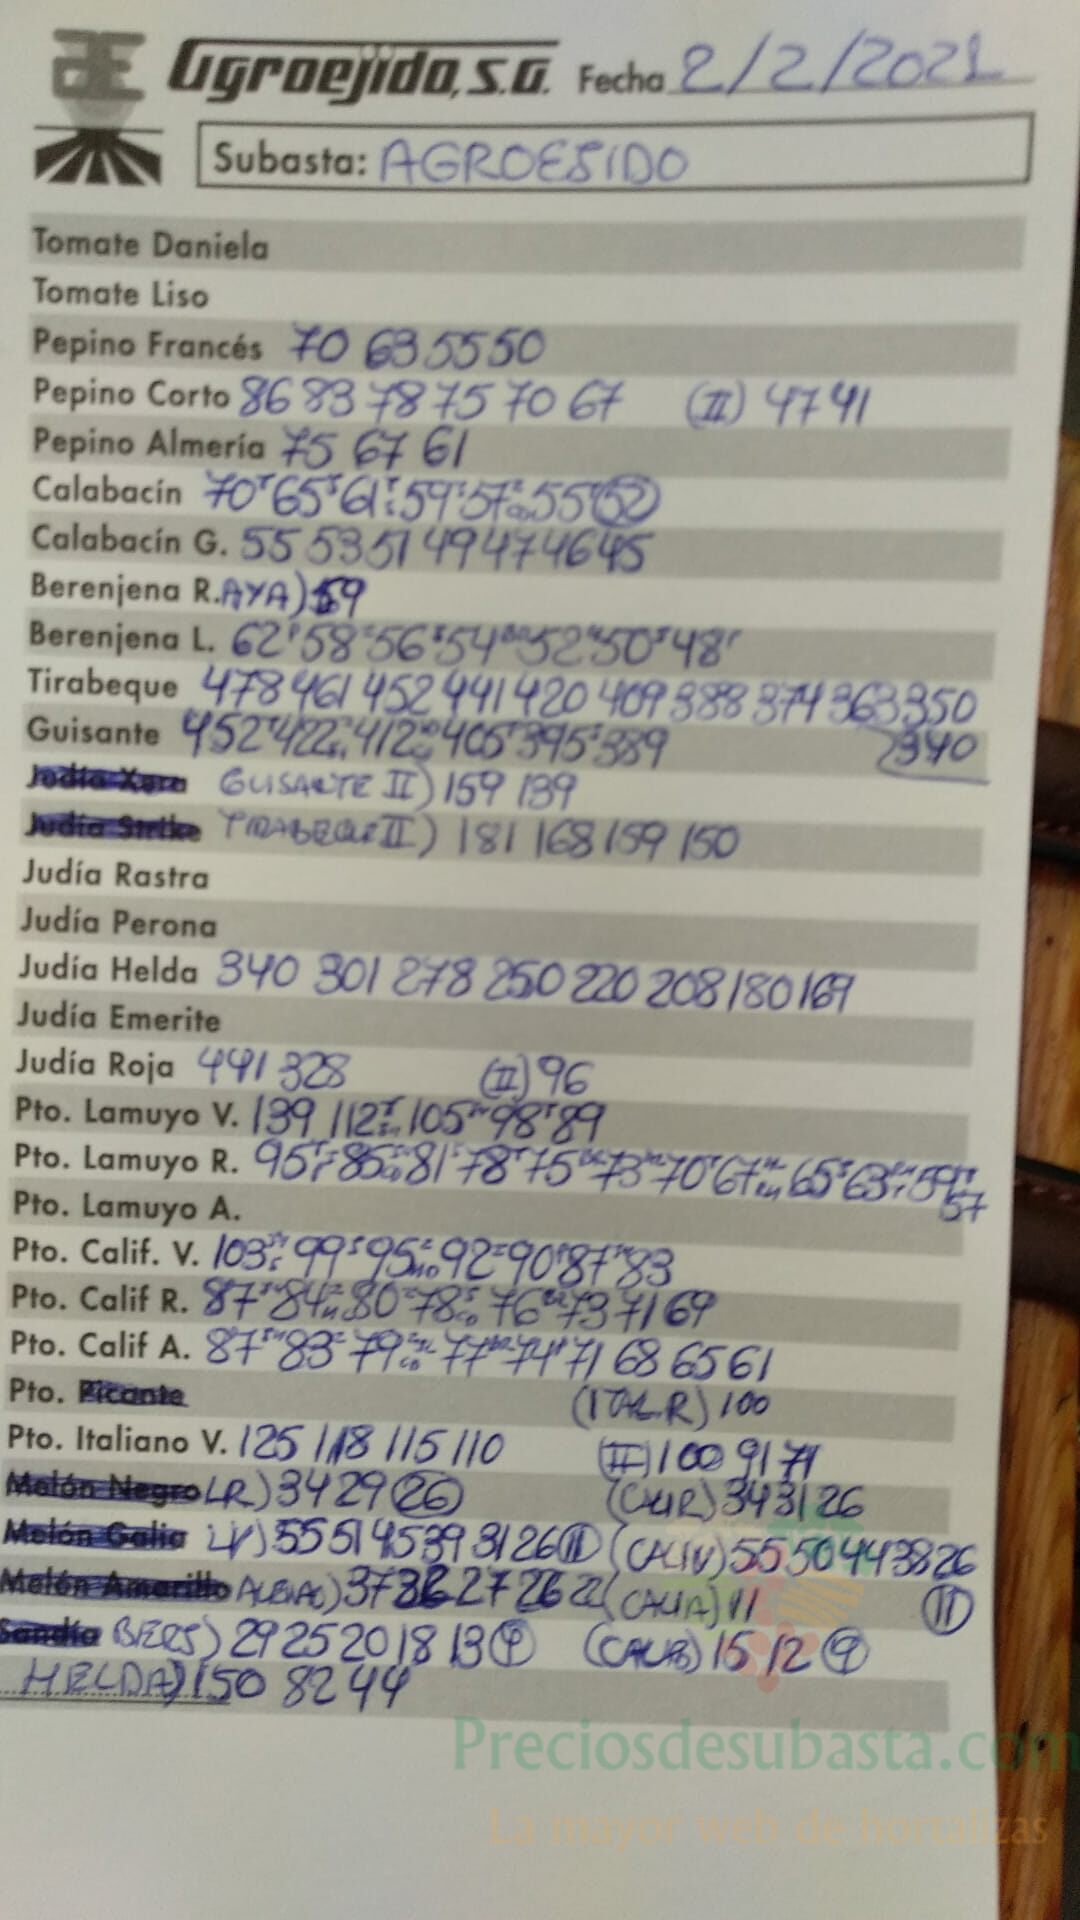 Agroejido, S.A. Fecha 2/2/2021
Subasta: AGROEJIDO
Tomate Daniela
Tomate Liso
Pepino Francés 70 63 55 50
Pepino Corto 86 83 78 75 70 67 (II) 47 41
Pepino Almería 75 67 61
Calabacín 70 65 61 59 57 55 52
Calabacín G. 55 53 51 49 47 46 45
Berenjena R. AYA) 59
Berenjena L. 62 58 56 54 52 50 48
Tirabeque 478 461 452 441 420 409 388 374 363 350
Guisante 452 422 412 405 395 389 340
Judía Xera GUISANTE II) 159 139
Judía Strike TIRABEQUE II) 181 168 159 150
Judía Rastra
Judía Perona
Judía Helda 340 301 278 250 220 208 180 169
Judía Emerite
Judía Roja 441 328 (II) 96
Pto. Lamuyo V. 139 112 105 98 89
Pto. Lamuyo R. 95 85 81 78 75 73 70 67 65 63 59
57
Pto. Lamuyo A.
Pto. Calif. V. 103 99 95 92 90 87 83
Pto. Calif R. 87 84 80 78 76 73 71 69
Pto. Calif A. 87 83 79 77 74 71 68 65 61
Pto. Picante (ITAL.R) 100
Pto. Italiano V. 125 118 115 110 (II) 100 91 71
Melón Negro LR) 34 29 26 (CALIR) 34 31 26
Melón Galia LV) 55 51 45 39 31 26 11 (CALIV) 55 50 44 38 26
Melón Amarillo 37 27 26 22 (CALIA) 11 11
Sandía BERJ) 29 25 20 18 13 9 (CALIB) 15 12 9
HELDA) 150 82 44
Preciosdesubasta.com
La mayor web de hortalizas